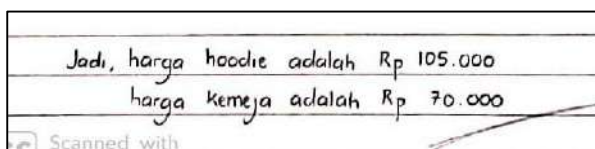 Jadi, harga hoodie adalah Rp 105.000
harga kemeja adalah Rp 70.000
Scanned with